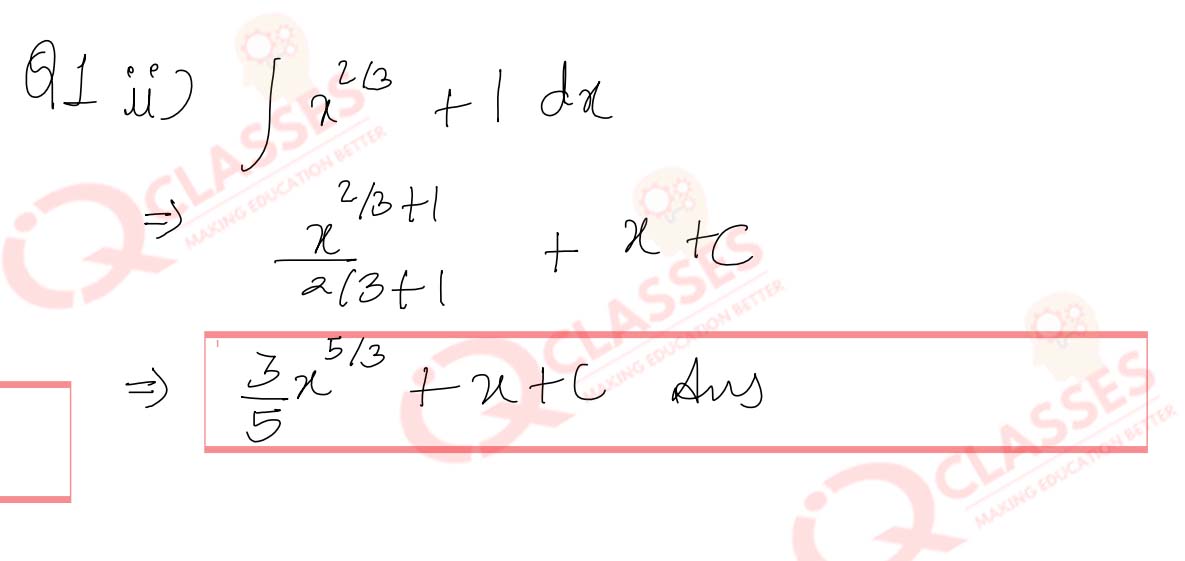 Q1 ii) ∫ x^{2/3} + 1 dx
⇒ x^{2/3+1} / 2/3+1 + x + C
⇒ 3/5 x^{5/3} + x + C Ans
IQ CLASSES
MAKING EDUCATION BETTER
IQ CLASSES
MAKING EDUCATION BETTER
IQ CLASSES
MAKING EDUCATION BETTER